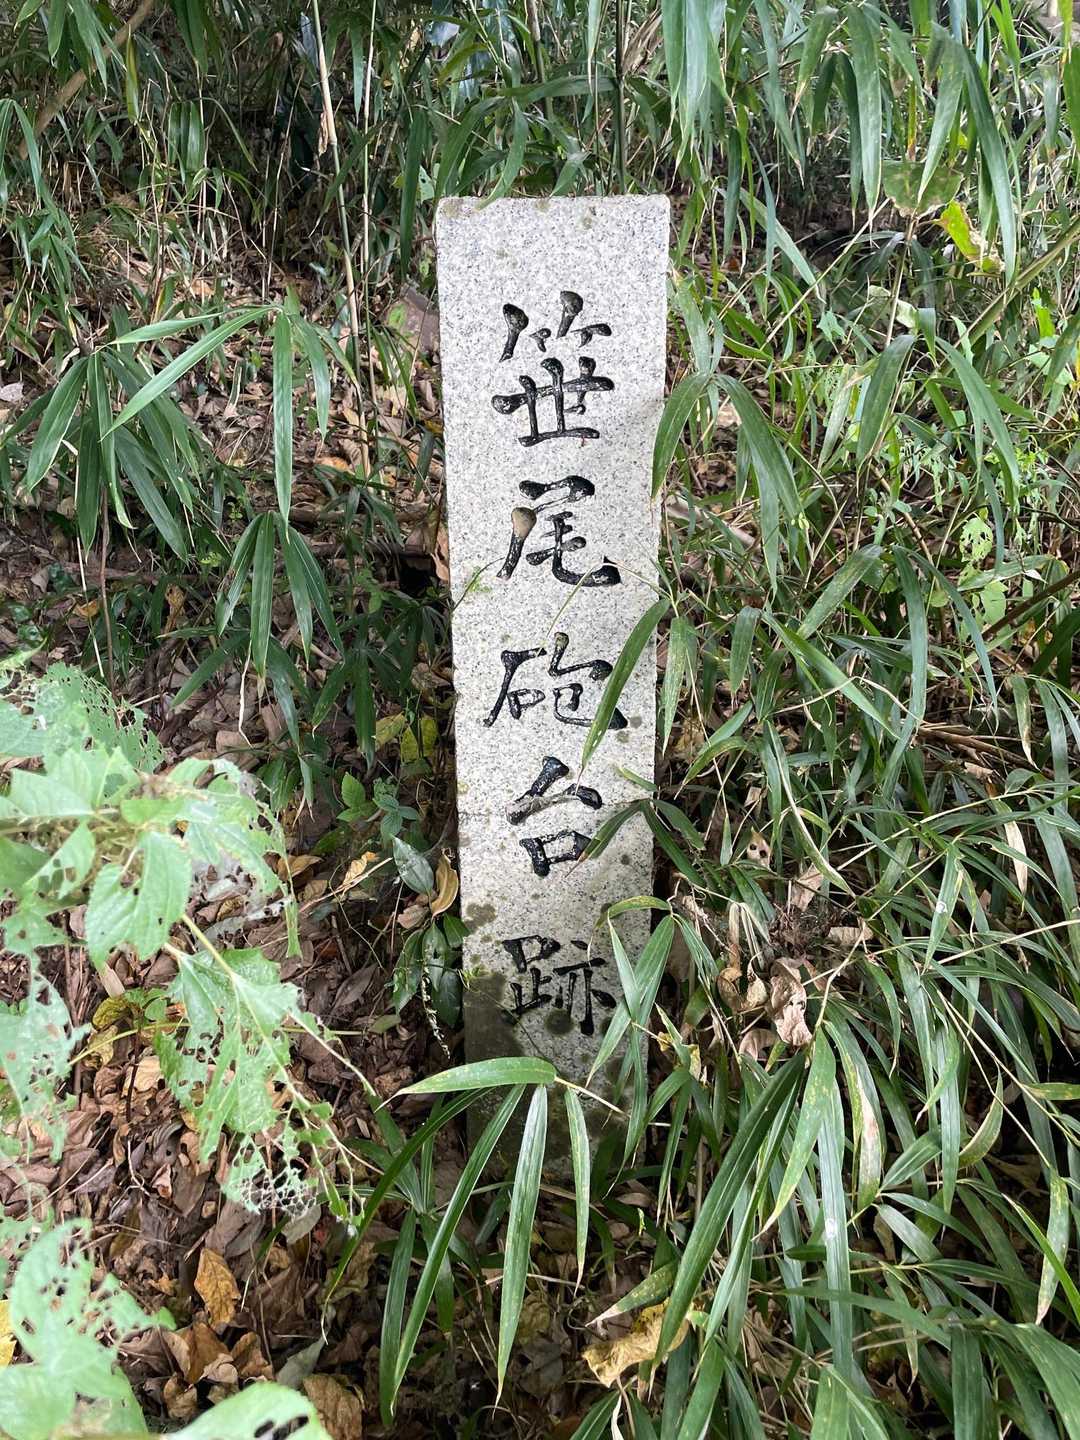 笹尾砲台跡